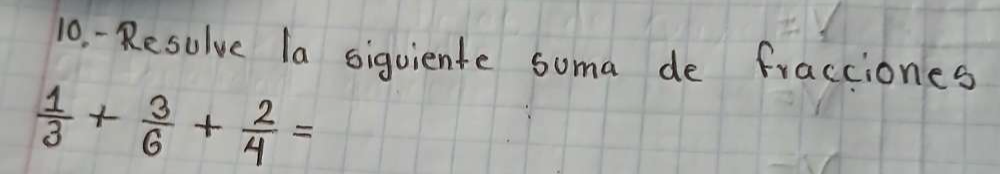 10.- Resolve la siguiente suma de fracciones
1/3 + 3/6 + 2/4 =